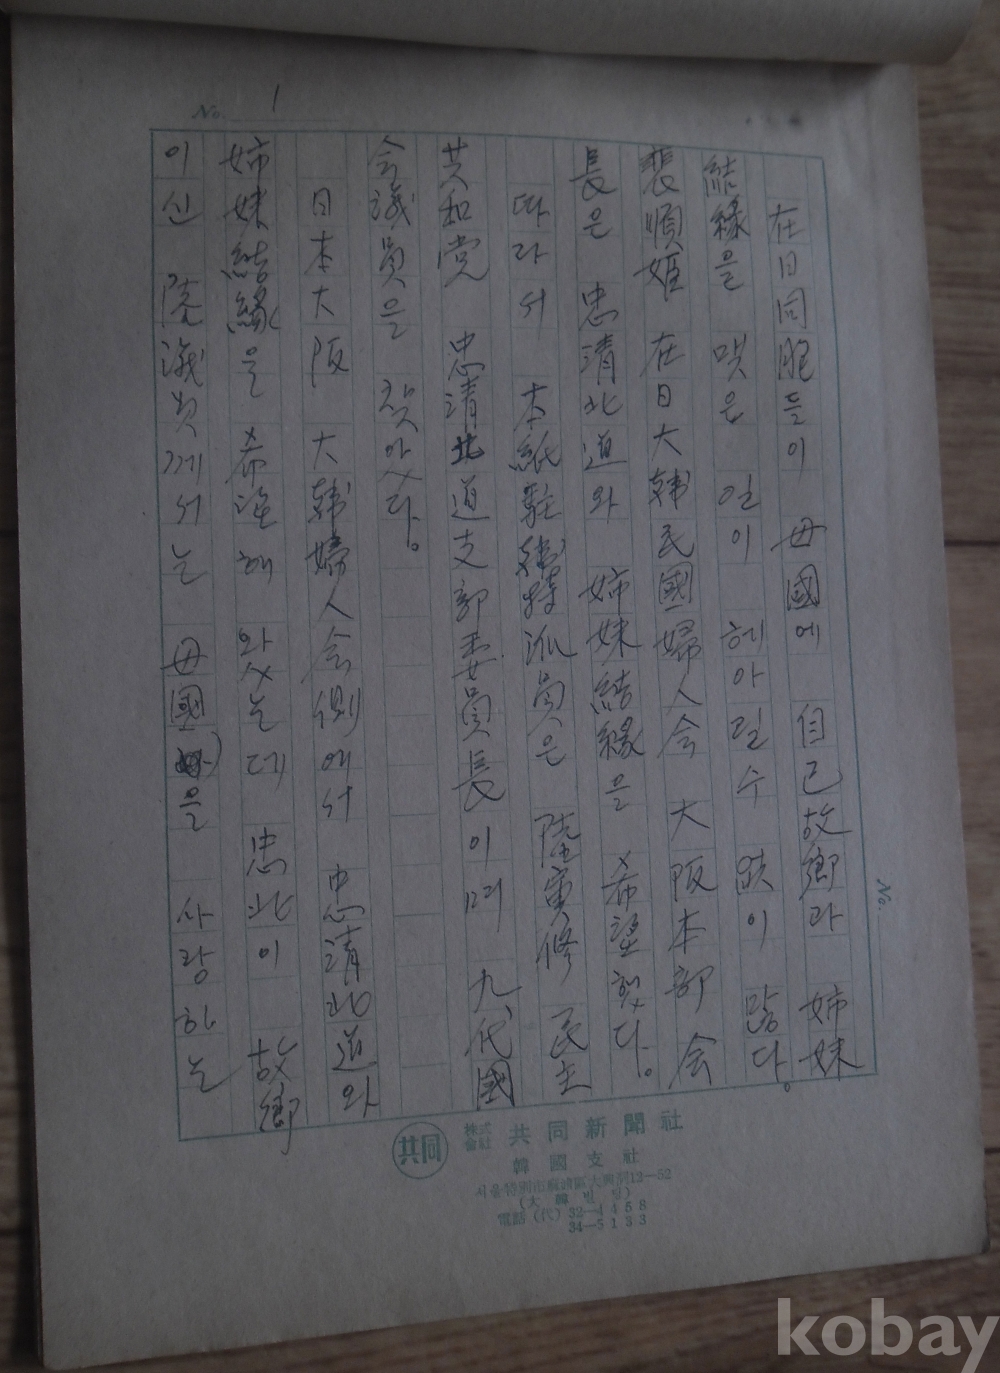 No. 1
在日同胞들이 母國에 自己故鄕과 姉妹
結緣을 맺은 일이 헤아릴수 없이 많다.
裵順姬 在日大韓民國婦人会 大阪本部 会
長은 忠淸北道와 姉妹結緣을 希望했다.
따라서 本紙駐韓特派員은 陸寅修 民主
共和党 忠淸北道支部委員長이며 九代國
会議員을 찾았다.
日本大阪 大韓婦人会側에서 忠淸北道와
姉妹結緣을 希望해 왔는데 忠北이 故鄕
이신 陸議員께서는 母國을 사랑하는
No.
共同 株式會社 共同新聞社
韓國支社
서울特別市麻浦區大興洞12—52
(大韓빌딩)
電話(代) 32—4458
34—5133
kobay